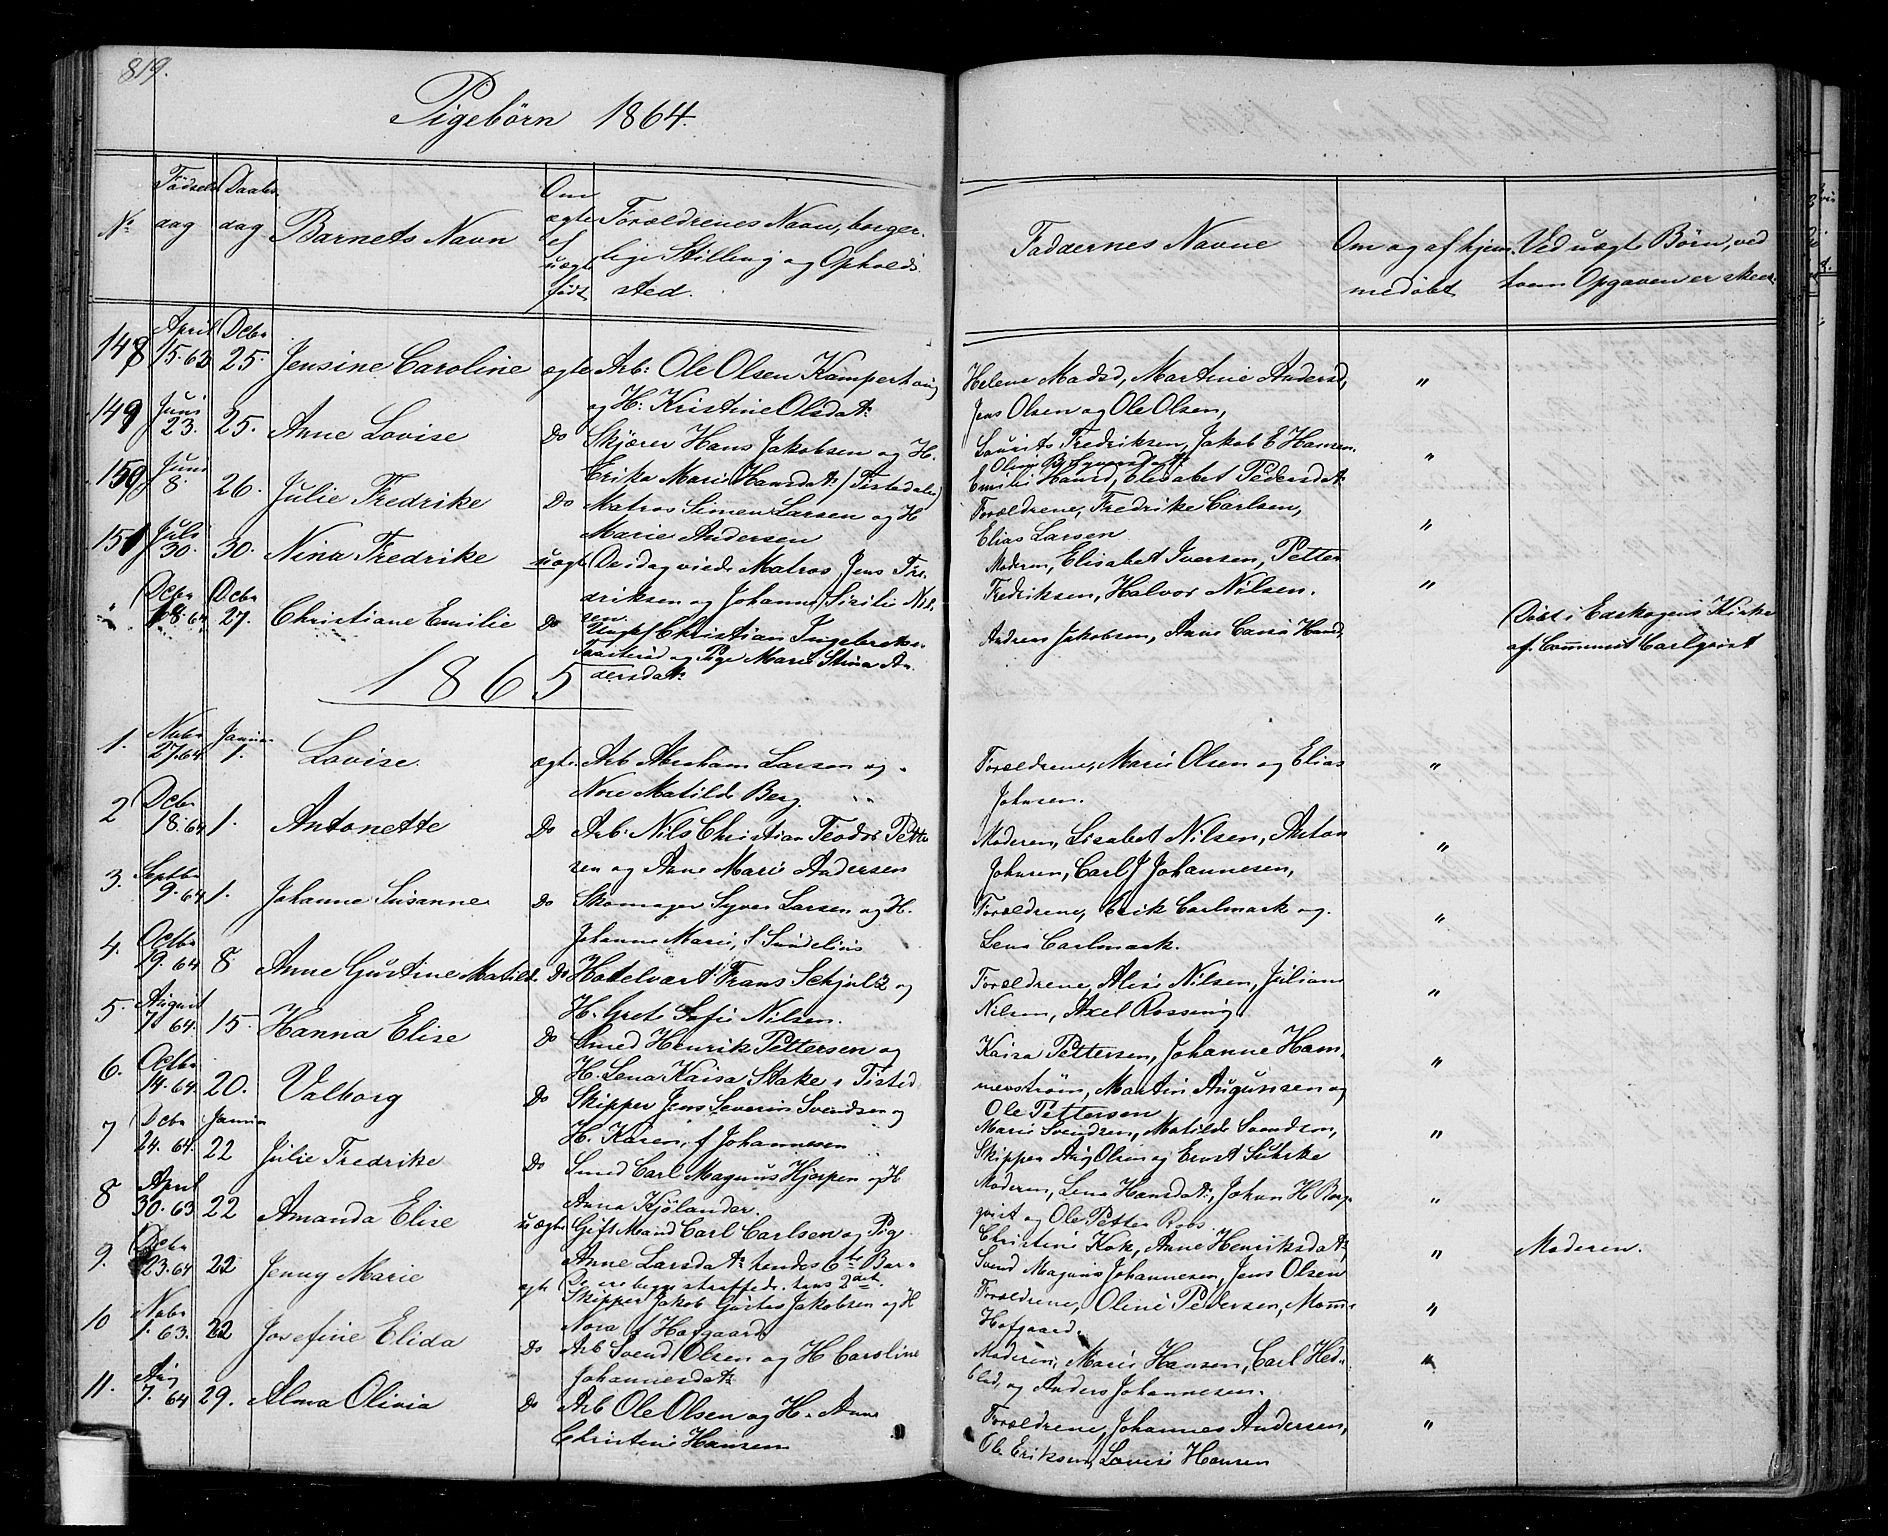 819.
Pigebørn 1864.
No
Fødsels dag
Daabs dag
Barnets Navn
Om ægte el uægte født
Forældrenes Navn, borger-
lige Stilling og Opholds
sted.
Faddernes Navne
Om og af hjem
medøbt
Ved uægt Børn, ved
hvem Opgaven er skeet.
148 April 15. 63 Dcbr 25. Jensine Caroline ægte Arb: Ole Olsen Kamperhaug
og H: Kristine Olsdatr
Helene Madsd, Martine Andersd, "
Jens Olsen og Ole Olsen,
149 Juni 23. 25. Anne Lovise Do Skjærer Hans Jakobsen og H.
Erika Marie Hansdatr (Tistedalen)
Laurits Fredriksen, Jakob E Hansen "
Emilie Hansd, Elisabet Pedersdatr
150 Juni 8. 26. Julie Fredrike Do Matros Simen Larsen og H
Marie Andersen
Forældrene, Fredrike Carlsen, "
Elias Larsen
151 Juli 30. 30. Nina Fredrike uægte De idag viede Matros Jens Fre-
driksen og Johanne Sirilie Nil-
sen.
Moderen, Elisabet Iversen, Petter
Fredriksen, Halvor Nilsen. "
" Dcbr 18. 64 Dcbr 27. Christiane Emilie Do Ungk Christian Ingebretsen
og Pige Marie Stina An-
dersdatr
Andreas Jakobsen, Anne Hansd
Døbt i Eidskogens Kirke
af Carlqvist
1865
1. Nvbr 27. 64 Januar 1. Lovise. ægte Arb Abraham Larsen og
Nore Matilde Berg.
Forældrene, Marie Olsen og Elias "
Johnsen.
2 Dcbr 18. 64 1. Antonette Do Arb: Nils Christian Teodor Petter
sen og Anne Marie Andersen
Moderen, Lisabet Nilsen, Anton "
Johnsen, Carl J Johannesen,
3. Septbr 9. 64 1. Johanne Susanne Do Skomager Syver Larsen og H.
Johanne Marie, f Sundelius
Forældrene, Erik Carlmark og "
Lena Carlmark.
4. Octbr 29. 64 8 Anne Gustine Matild. Do Hotelvært Frans Schjølz og
H. Grete Sofie Nilsen.
Forældrene, Alise Nilsen, Julian "
Nilsen, Axel Rossing
5. August 7. 64. 15. Hanna Elise Do Smed Henrik Pettersen og
H. Lena Kaisa Stake i Tisted.
Kaisa Pettersen, Johanne Ham- "
merstrøm, Martin Augunsen og
Ole Pettersen
6. Octbr 14. 64 20. Valborg Do Skipper Jens Severin Svendsen og
H. Karen, f Johannesen
Marie Svendsen, Matilde Svendsen, "
Skipper Aug Olsen og Ernst Suhrke
7 Dcbr 24. 64. Januar 22 Julie Fredrike Do Smed Carl Magnus Hjørpen og H
Anna Kjølander.
Moderen, Lena Hansdatr, Johan H Berg- "
qvist og Ole Petter Roos.
8 April 30. 63 22 Amanda Elise uægte Gift Mand Carl Carlsen og Pig.
Anne Larsdatr hendes 6te Barn
De ere begge straffede, hans 2det
Christine Kok, Anne Henriksdatr, " Moderen.
Svend Magnus Johannesen, Jens Olsen
9. Dcbr 23. 64 22 Jenny Marie ægte Skipper Jakob Gustav Jakobsen og H
Nora f Hofgaard
Forældrene, Oline Pedersen, "
Hofgaard.
10 Nvbr 1. 63. 22 Josefine Elida Do Arb Svend Olsen og H Caroline
Johannesdatr
Moderen, Marie Hansen, Carl Hed- "
blad, og Anders Johannesen.
11. Aug 7. 64 29. Alma Olivia Do Arb Ole Olsen og H. Anne
Christine Hansen
Forældrene, Johannes Andersen, "
Ole Eriksen, Lovise Hansen